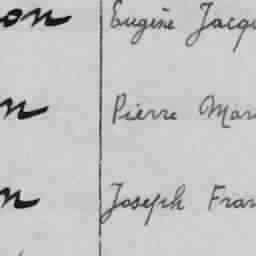 on Eugène Jacqu
n Pierre Mar
n Joseph Fran